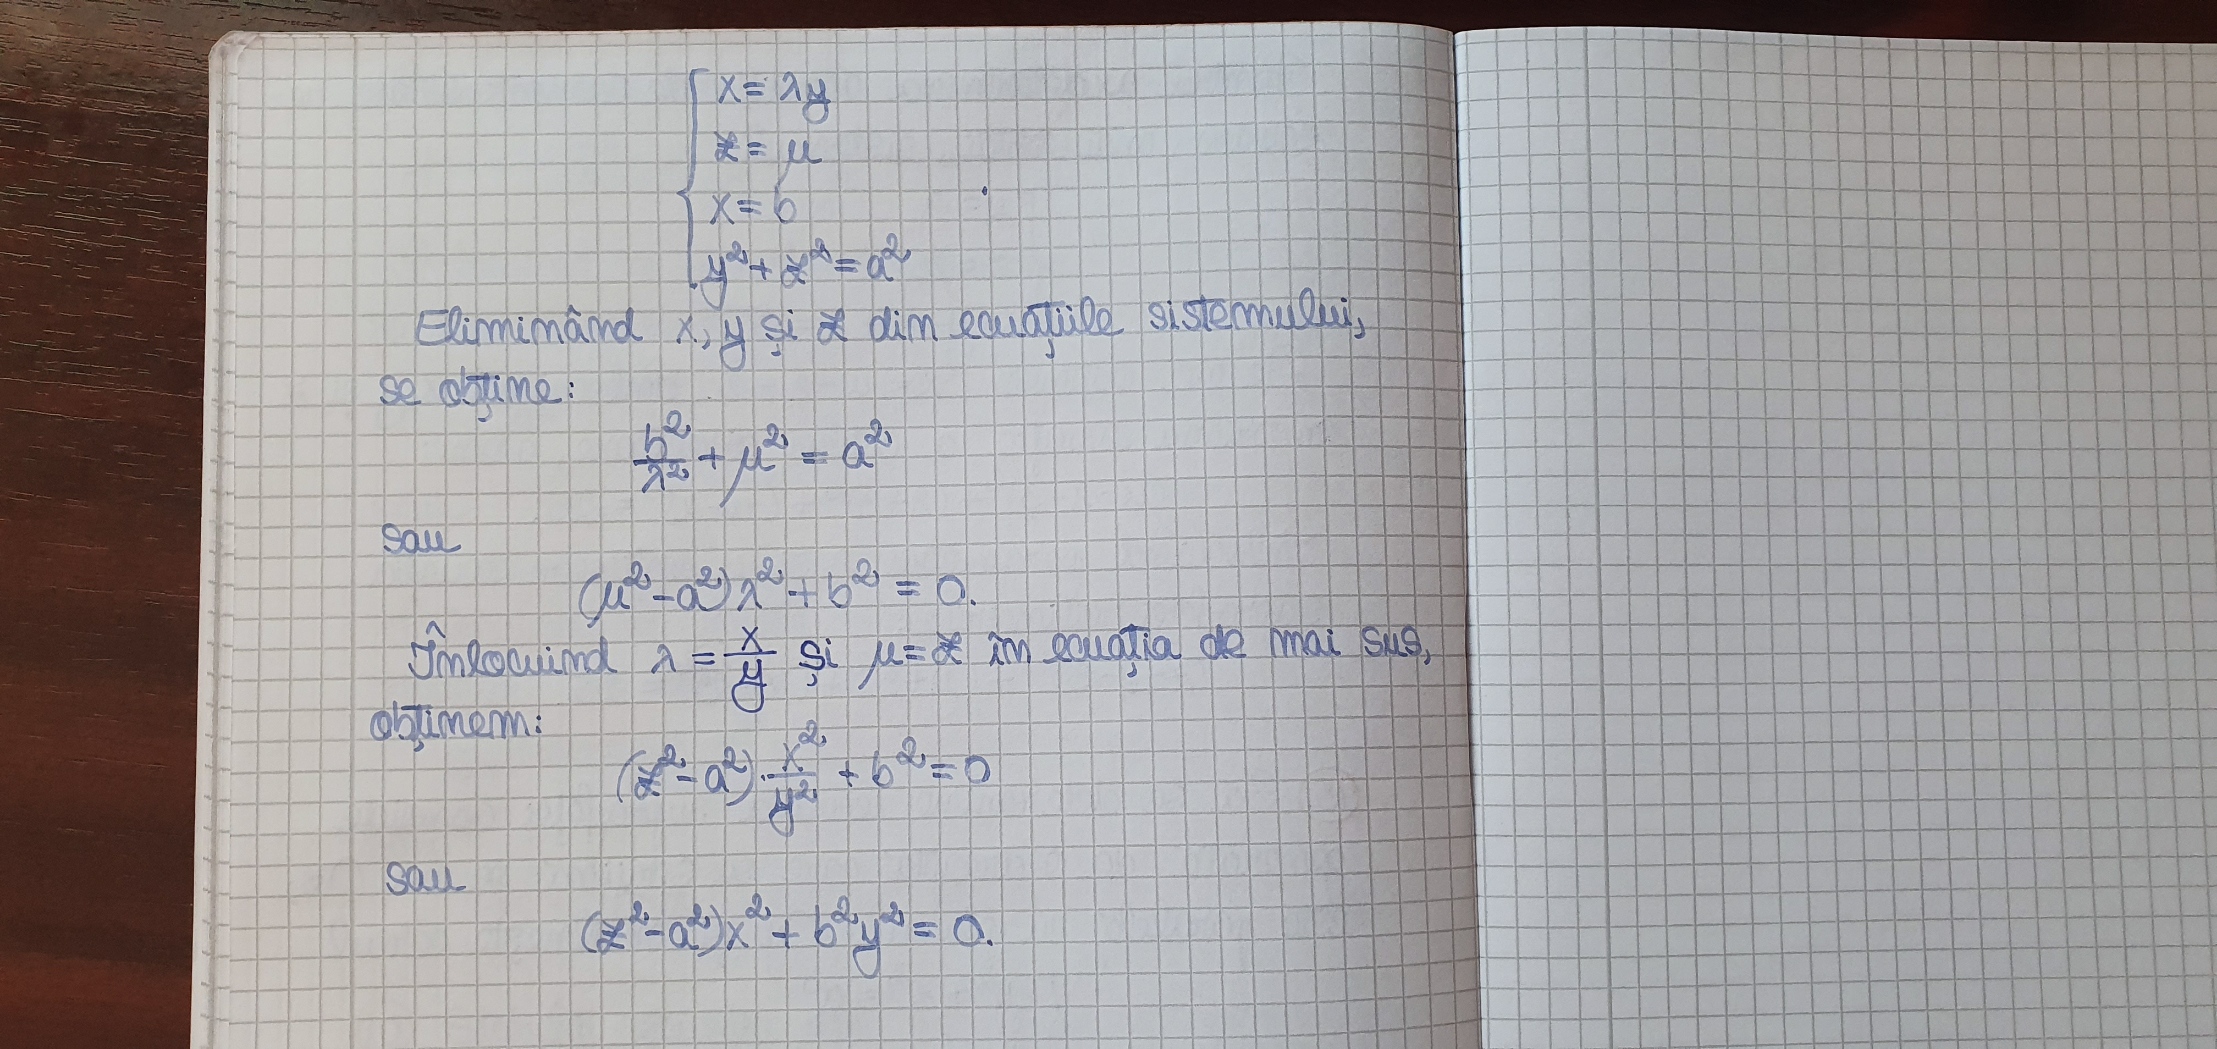 x = λy
z = μ
x = b
y² + z² = a²
Eliminând x, y și z din ecuațiile sistemului,
se obține:
b²/λ² + μ² = a²
sau
(μ² - a²)λ² + b² = 0.
Înlocuind λ = x/y și μ = z în ecuația de mai sus,
obținem:
(z² - a²) · x²/y² + b² = 0
sau
(z² - a²)x² + b²y² = 0.